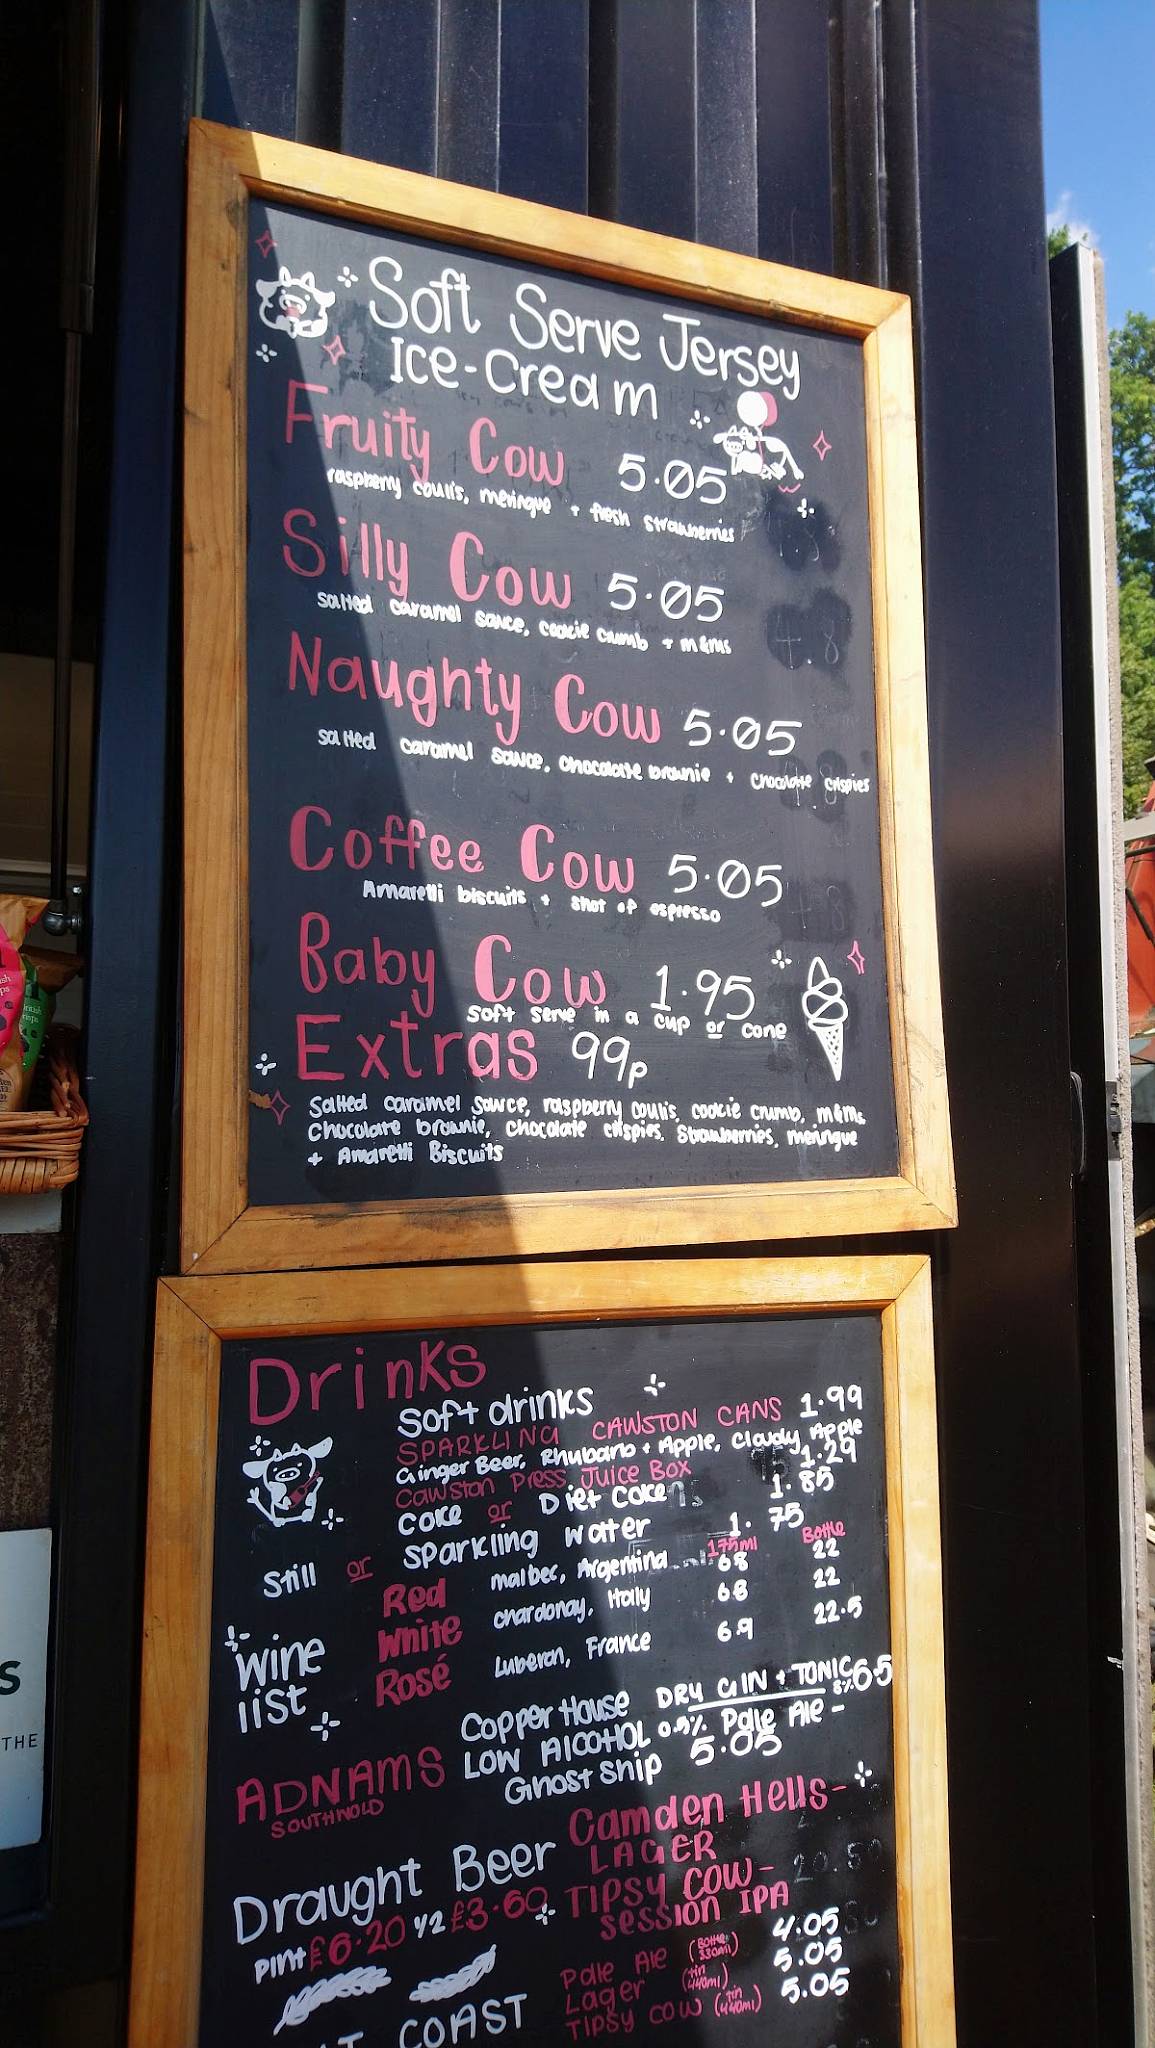 Soft Serve Jersey
Ice-Cream
Fruity Cow 5.05
raspberry coulis, meringue + fresh strawberries
Silly Cow 5.05
salted caramel sauce, cookie crumb + m&ms
Naughty Cow 5.05
salted caramel sauce, chocolate brownie + chocolate crispies
Coffee Cow 5.05
Amaretti biscuits + shot of espresso
Baby Cow 1.95
soft serve in a cup or cone
Extras 99p
Salted caramel sauce, raspberry coulis, cookie crumb, m&ms,
Chocolate brownie, chocolate crispies, strawberries, meringue
+ Amaretti Biscuits
Drinks
Soft drinks
SPARKLING CAWSTON CANS 1.99
Ginger Beer, Rhubarb + Apple, Cloudy Apple
Cawston Press Juice Box 1.29
Coke or Diet Coke 1.85
Still or Sparkling Water 1.75
175ml Bottle
Wine list
Red malbec, Argentina 6.8 22
White chardonay, Italy 6.8 22
Rosé Luberon, France 6.9 22.5
ADNAMS
SOUTHWOLD
Copper House DRY GIN + TONIC 6.5
LOW ALCOHOL 0.5% Pale Ale -
Ghost Ship 5.05
Draught Beer
Pint £6.20 1/2 £3.60
Camden Hells -
LAGER
TIPSY COW -
session IPA
COAST
Pale Ale (Bottle 330ml) 4.05
Lager (tin 440ml) 5.05
TIPSY COW (tin 440ml) 5.05
THE